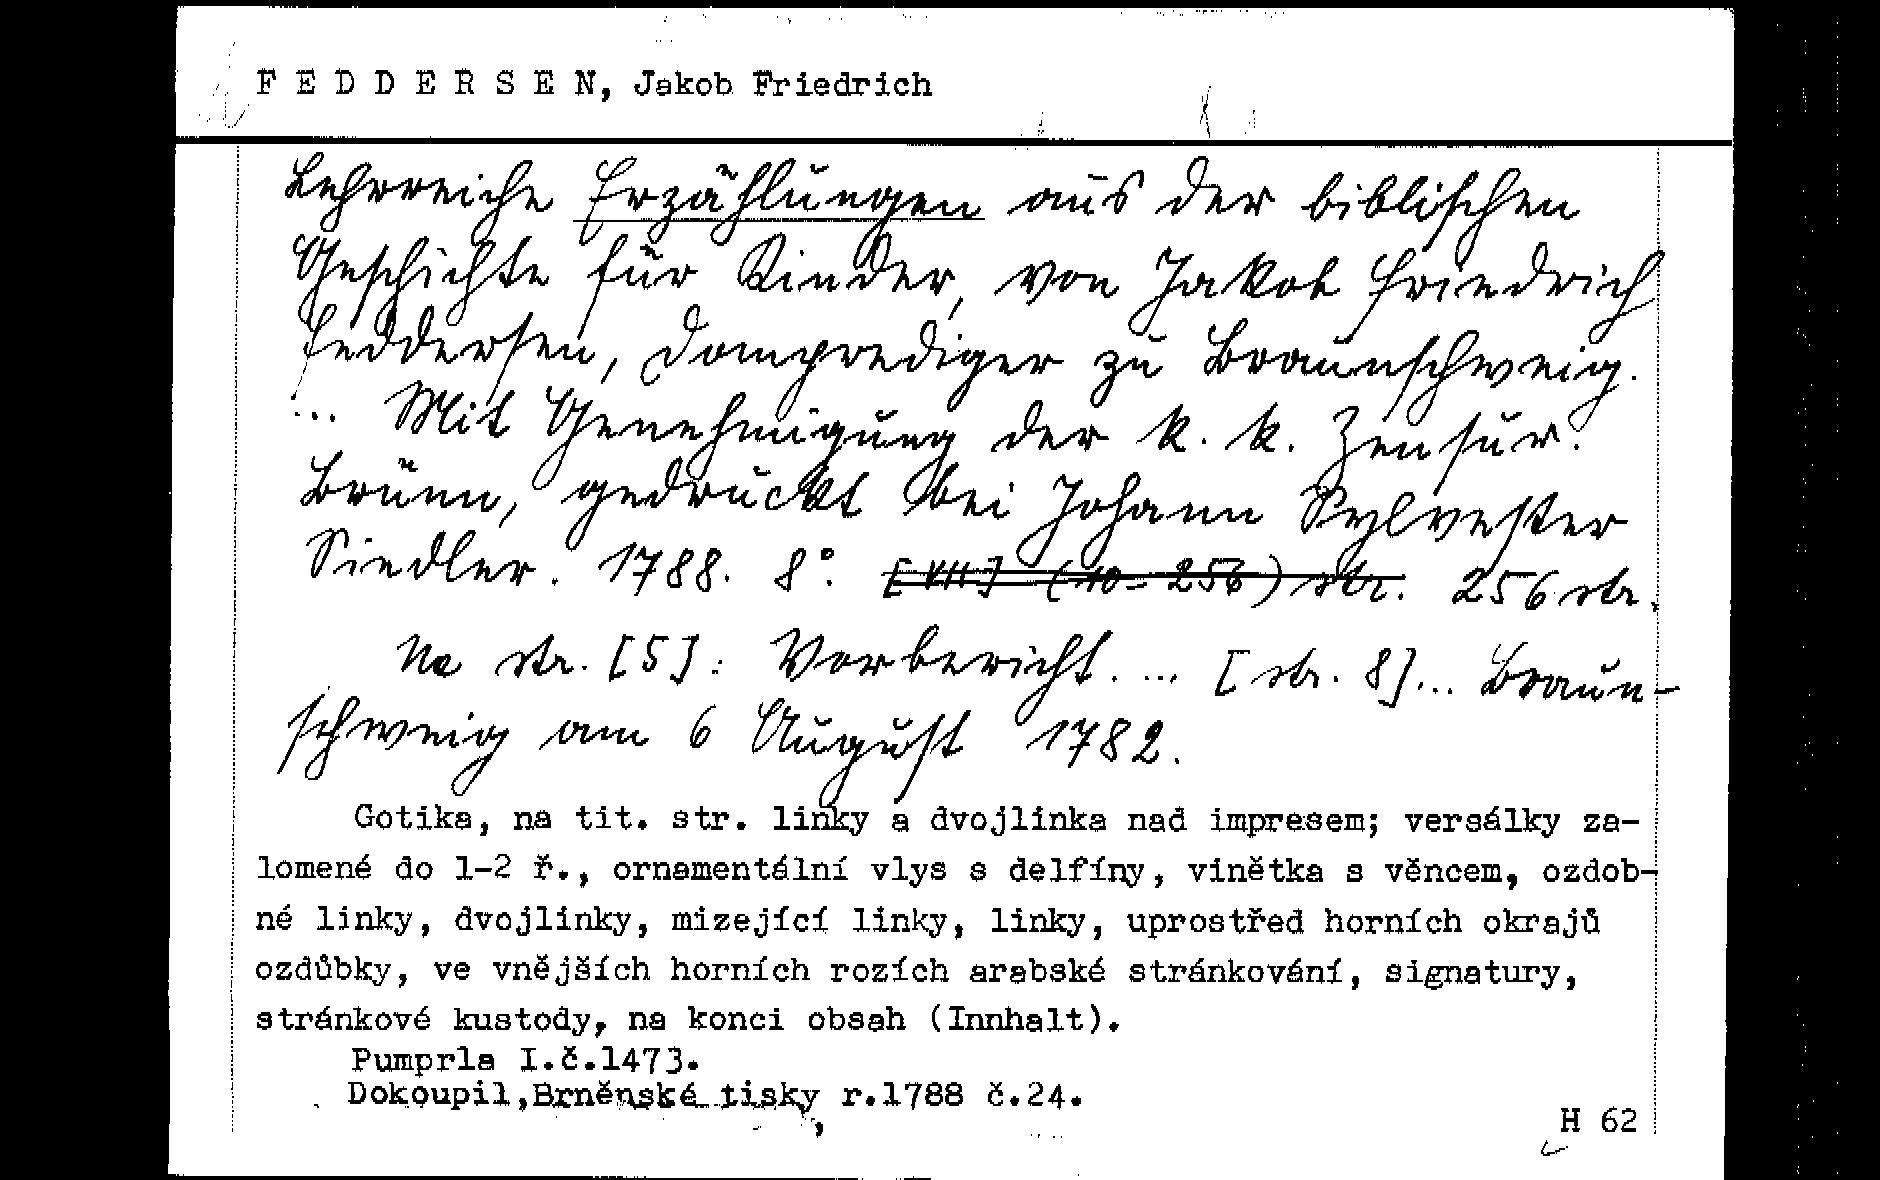 F E D D E R S E N, Jakob Friedrich
Lehrreiche Erzählungen aus der biblischen
Geschichte für Kinder, von Jakob Friedrich
Feddersen, Domprediger zu Braunschweig.
... Mit Genehmigung der k. k. Zensur.
Brünn, gedruckt bei Johann Sylvester
Siedler. 1788. 8°. [VII] (10-256) str. 256 str.
Na str. [5]: Vorbericht. ... [str. 8]... Braun-
schweig am 6 August 1782.
Gotika, na tit. str. linky a dvojlinka nad impresem; versálky za-
lomené do 1-2 ř., ornamentální vlys s delfíny, vinětka s věncem, ozdob-
né linky, dvojlinky, mizející linky, linky, uprostřed horních okrajů
ozdůbky, ve vnějších horních rozích arabské stránkování, signatury,
stránkové kustody, na konci obsah (Innhalt).
Pumprla I.č.1473.
Dokoupil,Brněnské tisky r.1788 č.24.
H 62